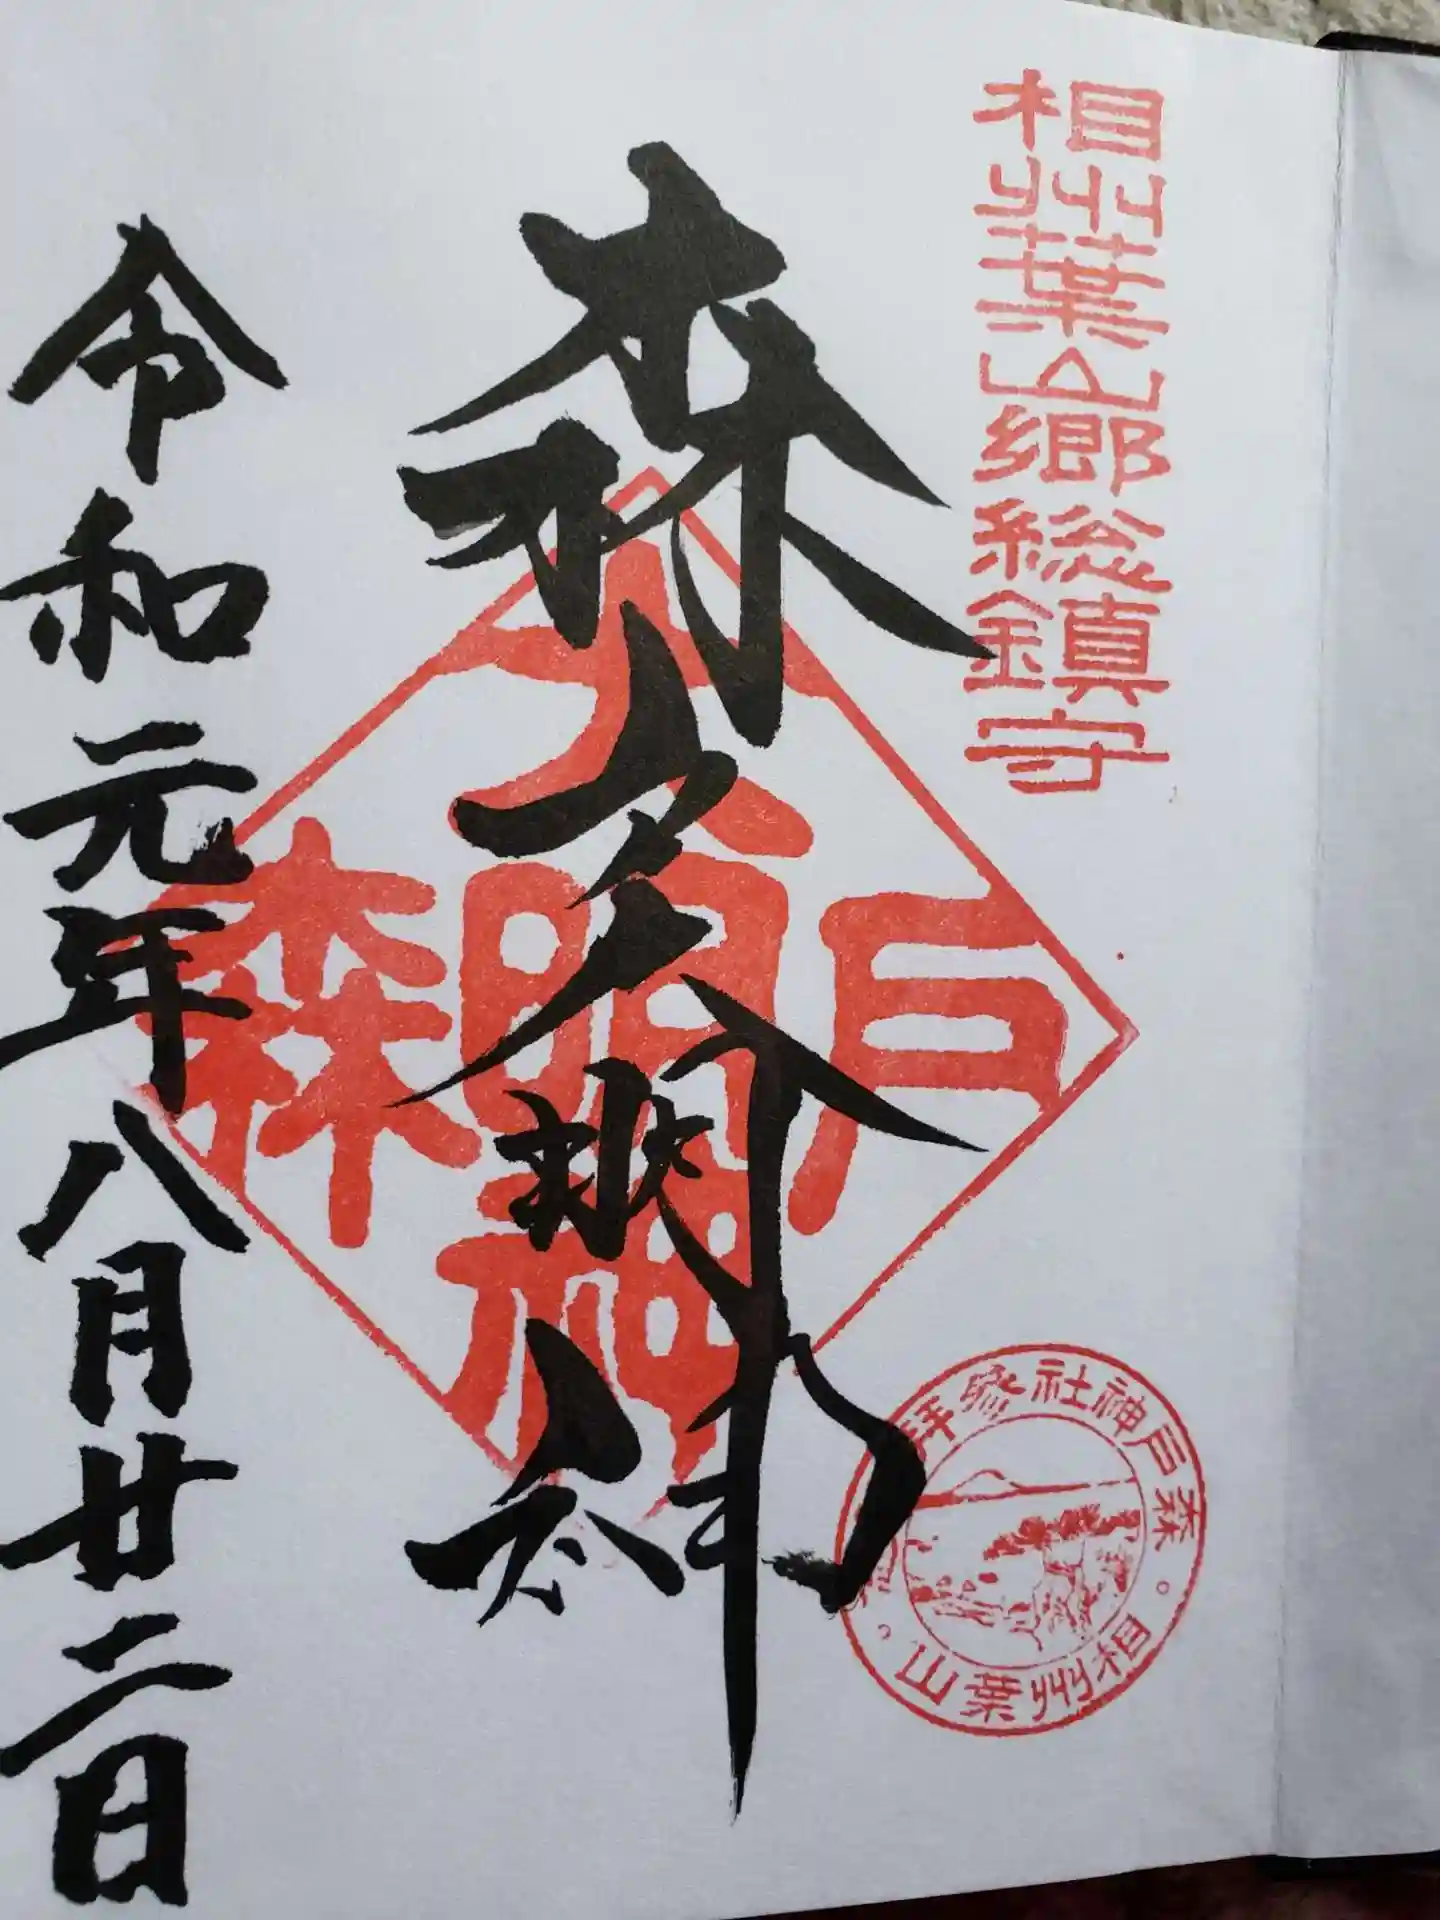 相州葉山郷総鎮守
森戸大明神
森戸神社參拝
相州葉山
令和元年八月廿二日